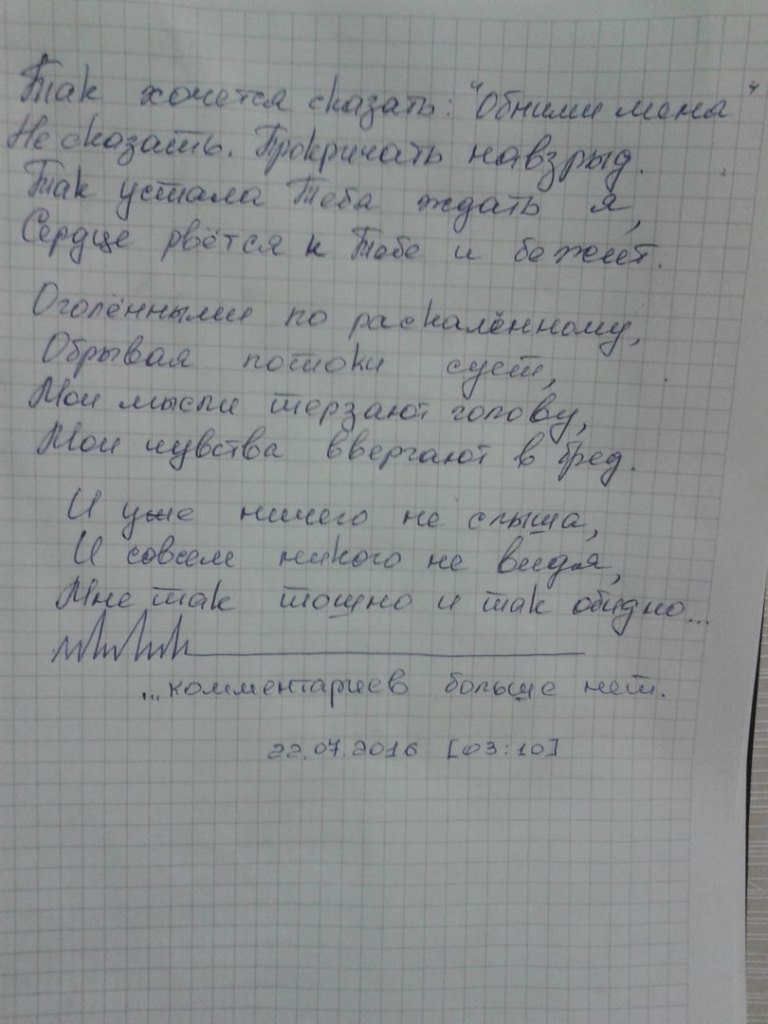 Так хочется сказать: "Обними меня"
Не сказать. Прокричать навзрыд.
Так устала Тебя ждать я,
Сердце рвётся к Тебе и бежит.
Оголёнными по раскалённому,
Обрывая потоки сует,
Мои мысли терзают голову,
Мои чувства ввергают в бред.
И уже ничего не слыша,
И совсем никого не видя,
Мне так тошно и так обидно...
...комментариев больше нет.
22.07.2016 [03:10]